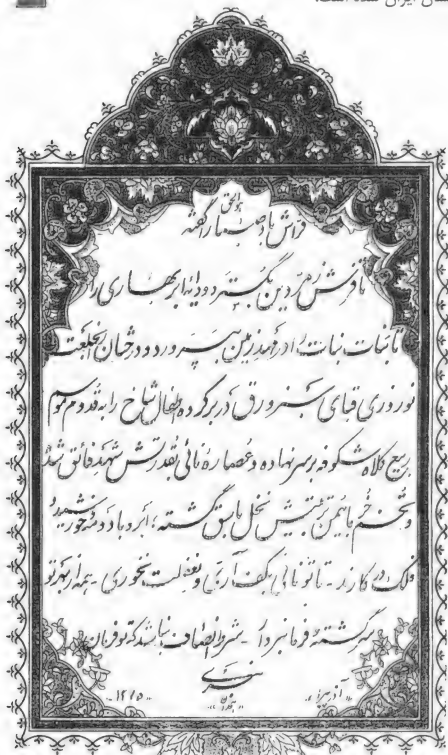 هوالحق
فراش باد صبا را گفته
تا فرش زمردین بگسترد و دایهٔ ابر بهاری را
تا بنات نبات را در مهد زمین بپرورد و درختان را بخلعت
نوروزی قبای سبز ورق در بر کرده و اطفال شاخ را به قدوم موسم
ربیع کلاه شکوفه بر سر نهاده و عصاره نائی بقدرتش شهد فائق شده
و تخم خرما بیمن تربیتش نخل باسق گشته، ابر و باد و مه و خورشید و
فلک در کارند - تا تو نانی بکف آری و بغفلت نخوری - همه از بهر تو
سرگشته و فرمانبردار - شرط انصاف نباشد که تو فرمان
نبری